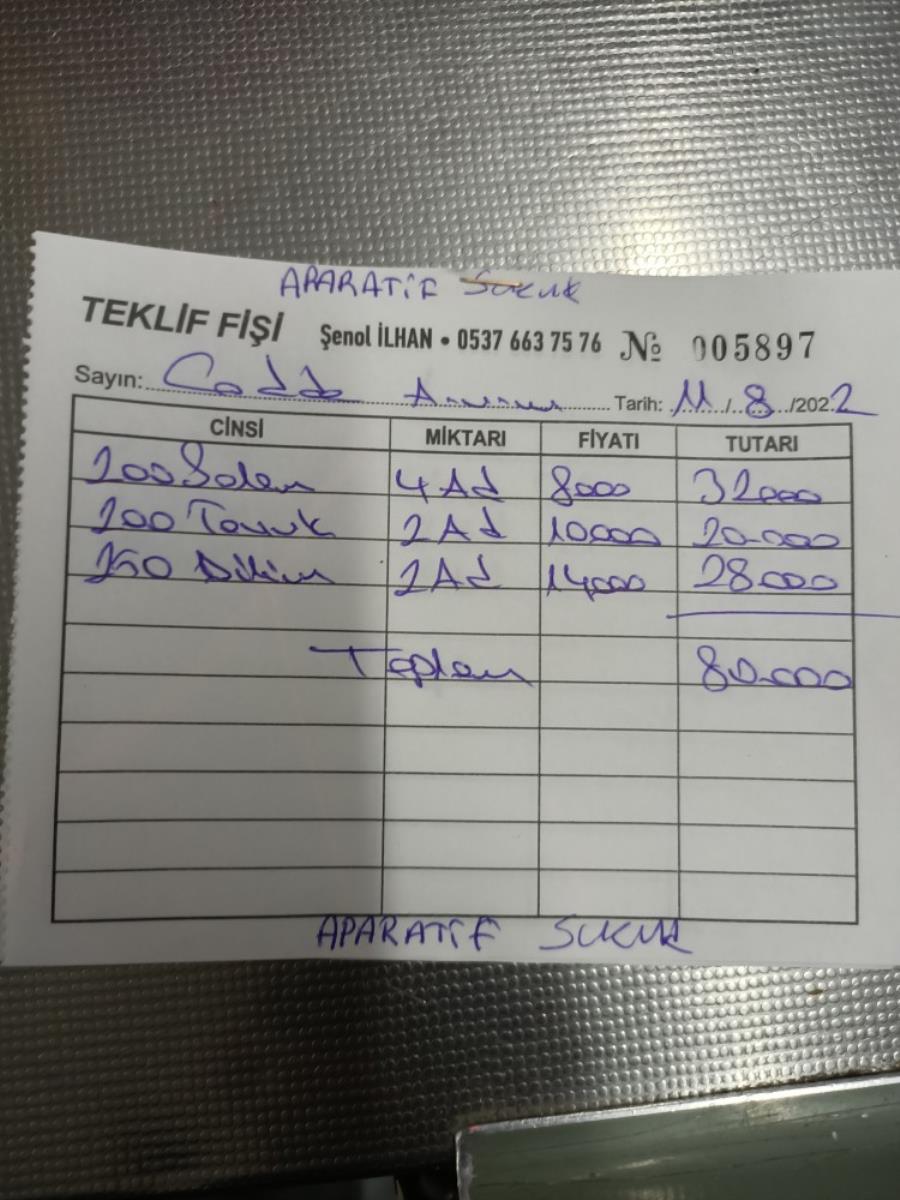 APARATİF SUCUK
TEKLİF FİŞİ Şenol İLHAN • 0537 663 75 76 № 005897
Sayın: Cadde Tarih: 11/8/2022
CİNSİ MİKTARI FİYATI TUTARI
200 Salam 4 Ad 8000 32000
200 Tavuk 2 Ad 10000 20.000
250 Dilim 2 Ad 14000 28000
Toplam 80.000
APARATİF SUCUK